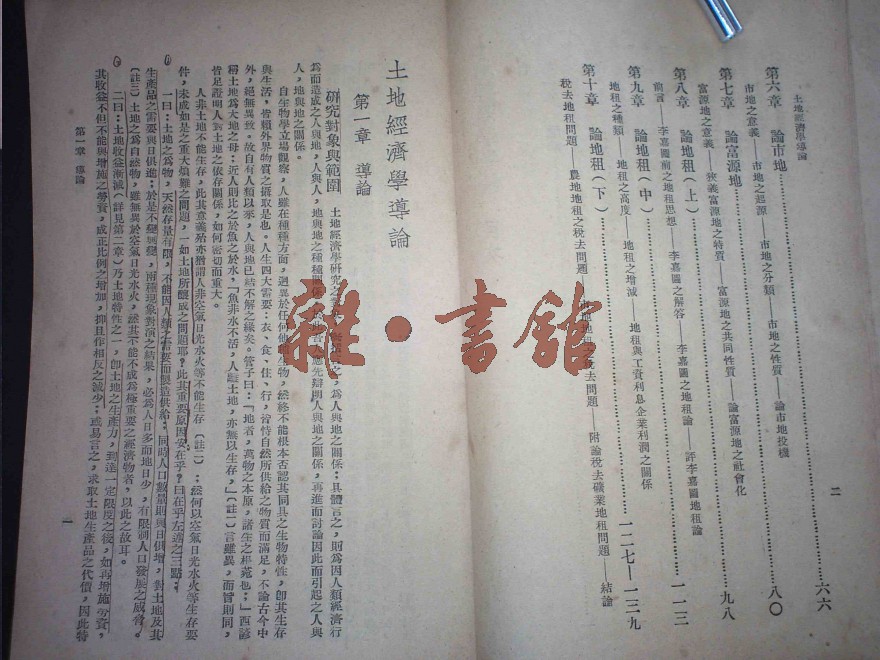 土地經濟學導論
二
第六章　論市地……六六
市地之意義——市地之起源——市地之分類——市地之性質——論市地投機
第七章　論富源地……八〇
富源地之意義——狹義富源地之特質——富源地之共同性質——論富源地之社會化
第八章　論地租（上）……九八
前言——李嘉圖前之地租思想——李嘉圖之解答——李嘉圖之地租論——評李嘉圖地租論
第九章　論地租（中）……一一三
地租之種類——地租之高度——地租之增減——地租與工資利息企業利潤之關係
第十章　論地租（下）……一二七—一三九
稅去地租問題——農地地租之稅去問題——市地地租之稅去問題——附論稅去礦業地租問題——結論
土地經濟學導論
第一章　導論
研究對象與範圍　土地經濟學研究之對象，為人與地之關係；具體言之，則為因人類經濟行
為而造成之人與地，人與人，地與地之種種關係。應先辯明人與地之關係，再進而討論因此而引起之人與
人，地與地之關係。
自生物學立場觀察，人雖在種種方面，迥異於任何他種生物，然終不能根本否認其同具之生物特性，卽其生存
與生活，皆賴外界物質之攝取是也。人生四大需要：衣、食、住、行，皆恃自然所供給之物質而滿足，不論古今中
外，絕無異致。故自有人類以來，人與地已結不解之緣矣。管子曰：「地者，萬物之本原，諸生之根菀也；」西諺
稱土地為大地之母：近人則比之於魚之於水，「魚非水不活，人離土地，亦無以生存，」（註一）言雖異，而旨則同，
皆足證明人對土地之依存關係，如何密切而重大。
人非土地不能生存，然其意義殆亦猶謂人非空氣日光水火等不能生存（註二）；然何以空氣日光水火等生存要
件，未成如是之重大煩難之問題，一如土地所釀成之問題耶？此其重要原因安在乎？曰在乎左述之三點：
一曰：土地之為物，天然存量有限，不能因人類之需要而製造供給：同時人口數量則與日俱增，對土地及其
生產品之需要與日俱進；於是不變與變，兩種現象對演之結果，必為人日多而地日少，有限制人口發展之威脅。
（註三）土地之為自然物，雖無異於空氣日光水火，然其不能不成為極重要之經濟物者，以此之故耳。
二曰：土地收益漸減（詳見第二章）乃土地特性之一，卽土地之生產力，到達一定限度之後，如再增施勞資，
其收益不但不能與增施之勞資，成正比例之增加，抑且作相反之減少；或易言之，求取土地生產品之代價，因此特
第一章　導論
一
雜•書館